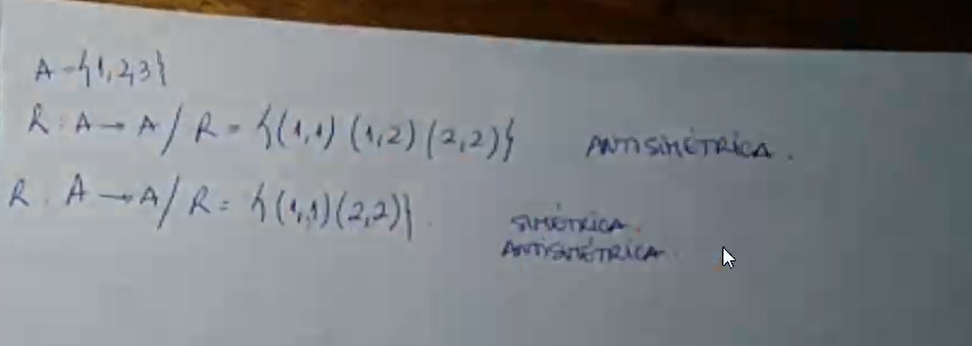 A = {1,2,3}
R : A → A / R = {(1,1) (1,2) (2,2)} ANTISIMÉTRICA.
R : A → A / R = {(1,1)(2,2)}. SIMÉTRICA.
ANTISIMÉTRICA.